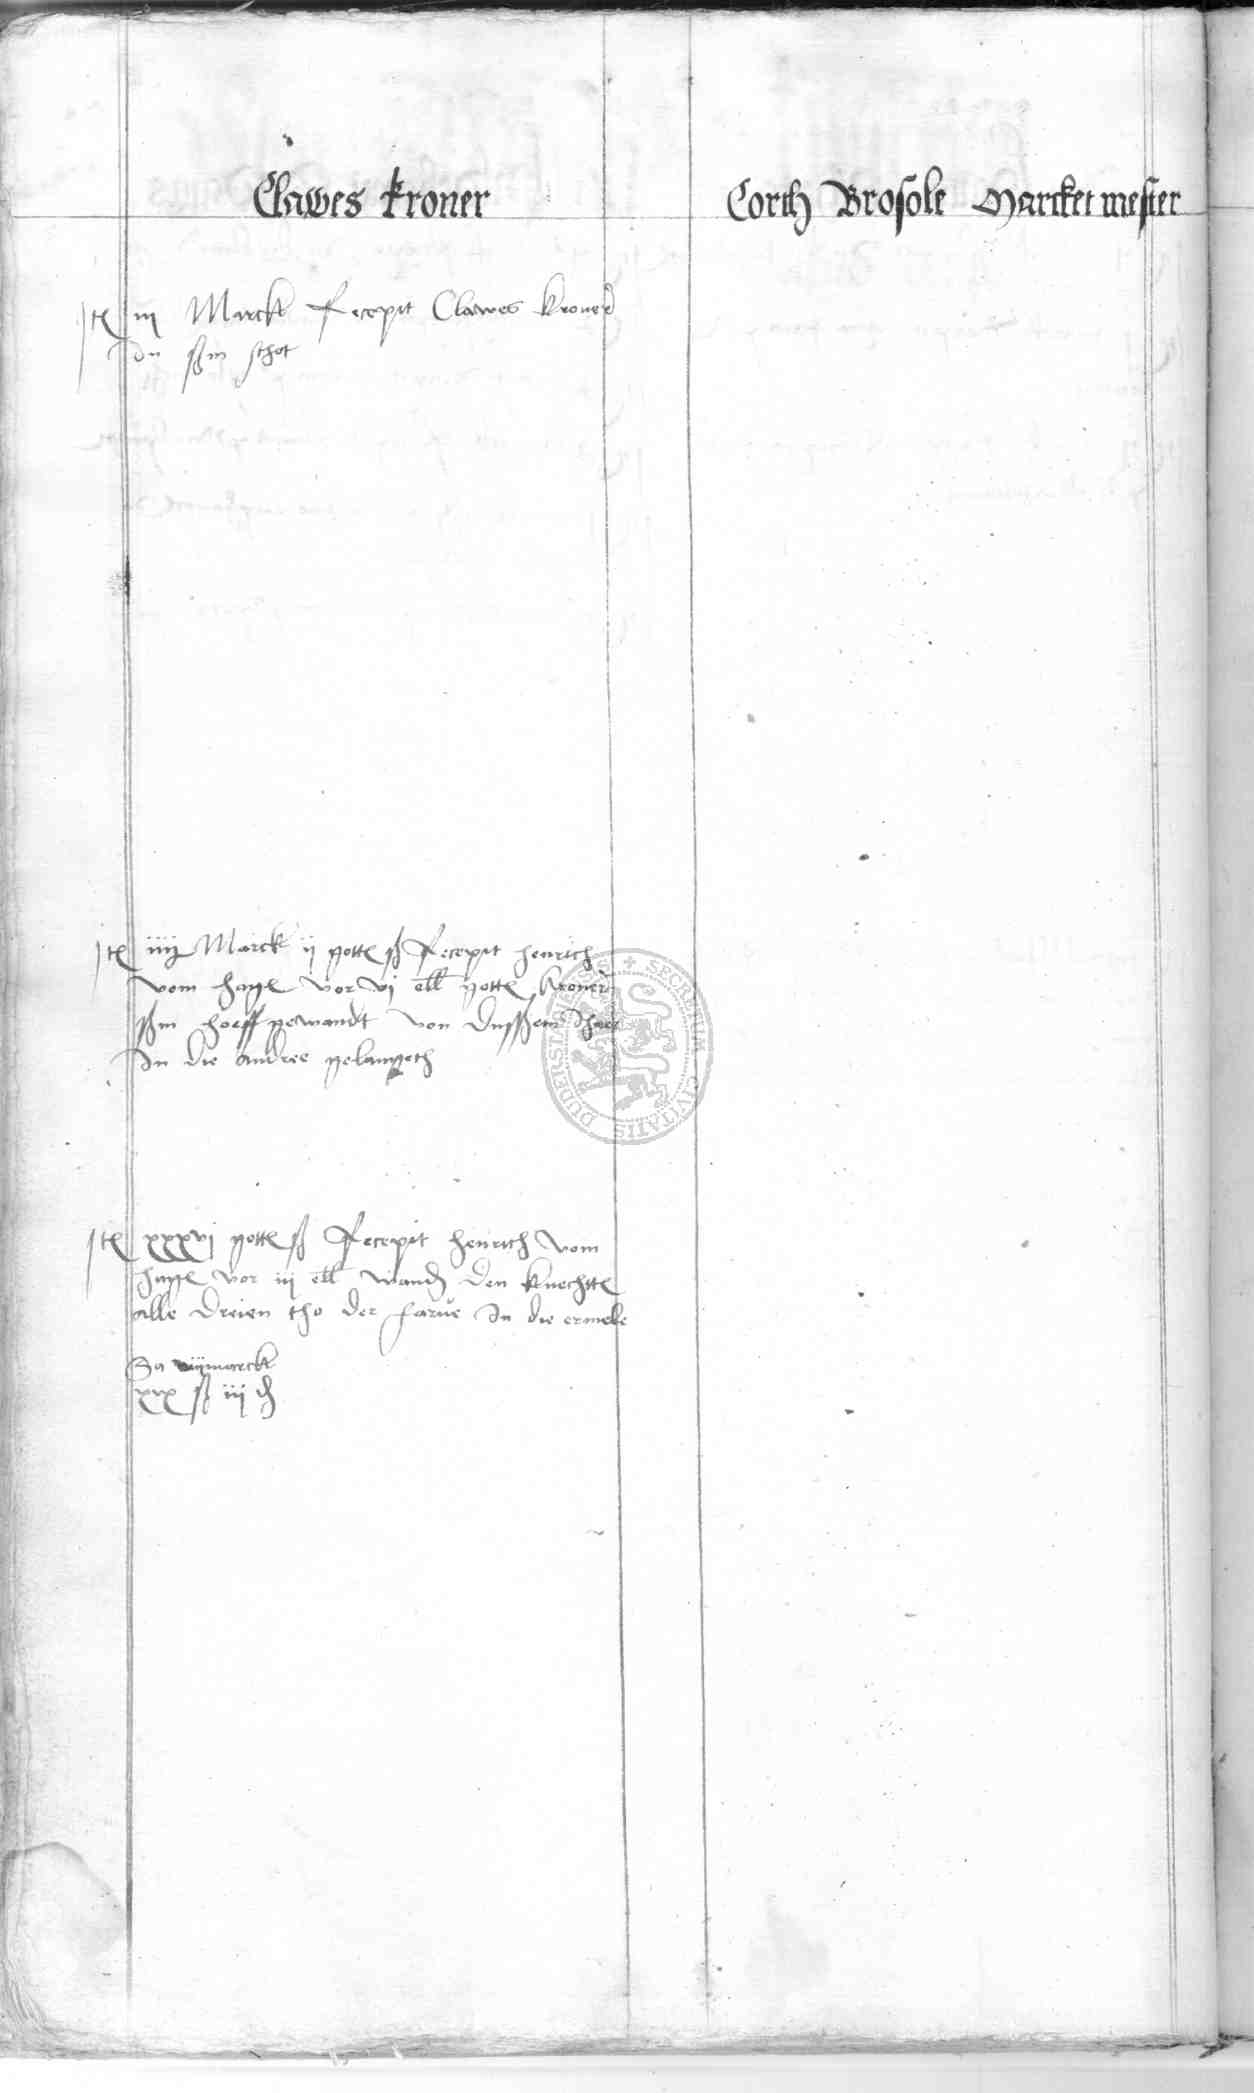 Clawes kroner
Corth Brosole Marcket mester
Jt iij Marck Recepit Clawes kroner
An ßin schot
Jt iiij Marck ij gott ß Recepit henrich
vom hage vor vj ell gott kroner
ßin hoeff gewandt von dussem Jhaer
In die andree gelangeth
Jt xxxvj gott ß Recepit henrich vom
hage vor iij ell wand den knechtte
alle dreien tho der farue In die ermele
Sa marck
xxx ß iij d
SECRETUM CIVITATIS DUDERSTATENSIS